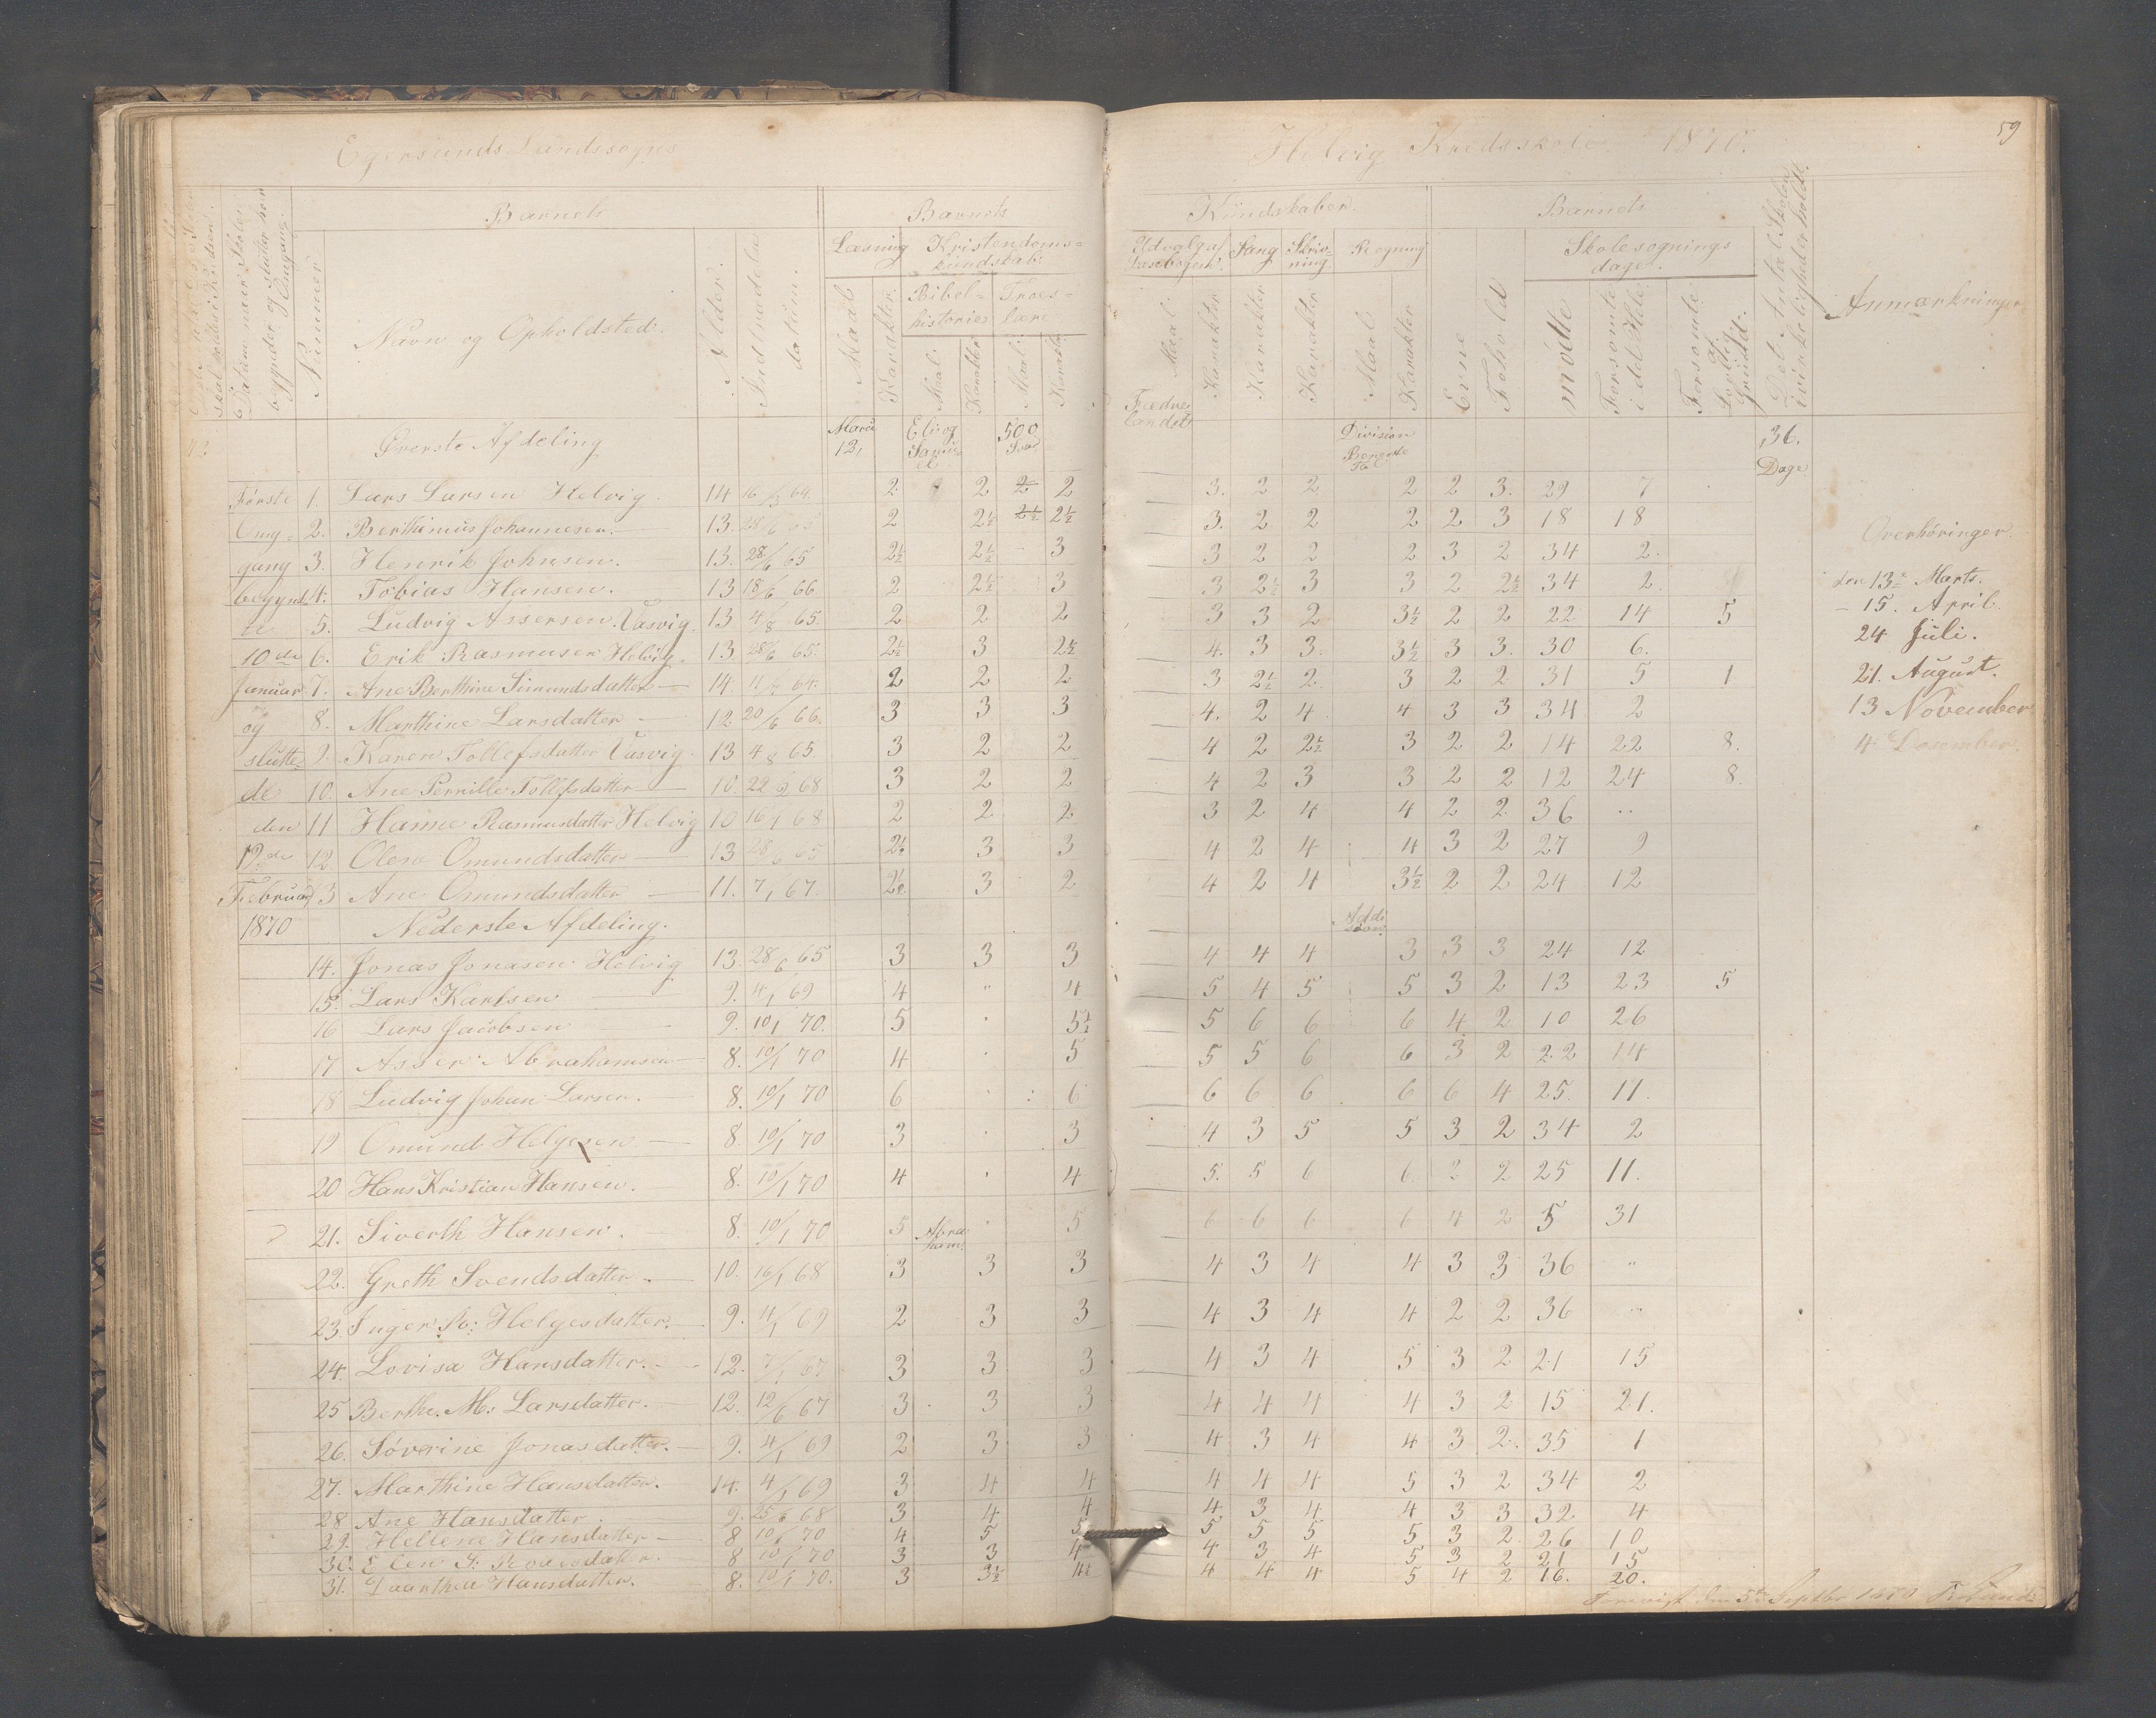 59
Egersunds Landssogns
Helvig Kredsskole 1870.
Barnets
Barnets
Kundskaber.
Barnets
Nummer
Navn og Opholdsted.
Alder.
Indtrædelse datum.
Læsning
Kristendoms=
kundskab.
Maal
Karakter
Bibel=
histories
Troes=
lære
Maal.
Karakter
Maal.
Karakter
Udvalg af
Læsebogen.
Sang
Skriv=
ning.
Regning
Maal.
Karakter
Karakter
Karakter
Maal.
Karakter
Evne
Forhold
Skolesøgnings
dage.
mødte
Forsømte
i det Hele
Forsømte
af
Lovlig
Grund.
Det Antal Skolen
i virkeligheden holdt.
Anmærkninger
42
Øverste Afdeling
Marci
12,
Eli og
Samu=
el
500
Svar
Fædre
landet
Division
Benævnte
Tal
36.
Dage
Første 1. Lars Larsen Helvig. 14 16/5 64. 2 2 2 2 3. 2 2 2 2 3. 29 7
Omg= 2. Berthinius Johannesen. 13 28/6 65 2 2½ 2½ 2½ 3. 2 2 2 2 3 18 18
gang 3. Henrik Johnsen. 13. 28/6 65 2½ 2½ 3 3 2 2 2 3 2 34 2.
begynd 4. Tobias Hansen. 13 18/6 66 2 2½ 3 3 2½ 3 3 2 2½ 34 2
te 5. Ludvig Assersen. Vasvig. 13 4/8 65. 2 2 2 3 3 2 3½ 2 2 22 14 5
10de 6. Erik Rasmusen Helvig. 13 28/6 65. 2½ 3 2½ 4. 3 3. 3½ 3 3. 30 6.
Januar 7. Ane Berthine Simundsdatter 14. 11/7 64. 2 2 2 3 2½ 2 3 2 2 31 5 1
og 8. Marthine Larsdatter 12. 20/6 66. 3 3 3 4. 2 4 4 3 3 34 2
slutte= 9. Karen Tollefsdatter Vasvig. 13 4/8 65. 3 2 2 4 2 2½ 3 2 2 14 22 8.
de 10. Ane Pernille Tollefsdatter 10. 22/2 68 3 2 2 4 2 3 3 2 2 12 24 8.
den 11 Hanne Rasmusdatter Helvig 10 16/1 68 2 2 2 3 2 4 4 2 2 36 ..
12de 12 Olene Omundsdatter 13 28/6 65 2½ 3 3 4 2 4 4 3 2 27 9
Februar 13 Ane Omundsdatter 11. 7/1 67. 2½ 3 2 4 2 4 3½ 2 2 24 12
1870 Nederste Afdeling.
Addi
tion
14. Jonas Jonasen Helvig 13. 28/6 65 3 3 3 4 4 4 3 3 3 24 12
15. Lars Karlsen 9. 4/1 69 4 " 4 5 4 5 5 3 2 13 23 5
16 Lars Jacobsen 9. 10/1 70. 5 5½ 5 6 6 6 4 2 10 26
17 Asser Abrahamsen 8. 10/1 70 4 5 5 5 6 6 3 2 22 14
18 Ludvig Johan Larsen. 8. 10/1 70 6 6 6 6 6 6 6 4 25. 11.
19 Omund Helgesen 8. 10/1 70 3 3 4 3 5 5 3 2 34 2
20 Hans Kristian Hansen. 8. 10/1 70 4 4 5. 5 6 6 2 2 25 11.
21. Siverth Hansen. 8. 10/1 70 5 5 6 6 6 6 4 2 5 31
Abra
ham.
22. Greth Svendsdatter. 10. 16/1 68 3 3 3 4 3 4 4 3 3 36 "
23. Inger Ro: Helgesdatter. 9. 4/1 69 2 3 3 4 3 4 4 2 2 36 "
24. Lovisa Hansdatter. 12. 7/1 67 3 3 3 4 3 4 5 3 2 21 15
25 Berthe. M: Larsdatter. 12. 12/6 67 3 3 3 4 4 4 4 3 2 15 21.
26. Söverine Jonasdatter. 9. 4/1 69 2 3 3 4 3 4 4 3 2. 35 1
27. Marthine Hansdatter. 14. 4/1 69 3 4 4 4 4 4 5 3 2 34 2
28 Ane Hansdatter 9. 25/6 68 3 4 4 4 3 4 4 3 3 32 4
29. Hellene Hansdatter 8 10/1 70 4 5 5 5 5 5 5 3 2 26 10
30. Elen S. 8 10/1 70 3 3 4 4 3 4 5 3 2 21 15
31. Daarthea Hansdatter. 8. 10/1 70. 3 3½ 4½ 4 4 4 5 4 2 16. 20.
Overhøringer.
den 13e Marts.
– 15. April.
24 Juli.
21. August.
13 November
4. Desember.
Forevist den 5te Septbr 1870